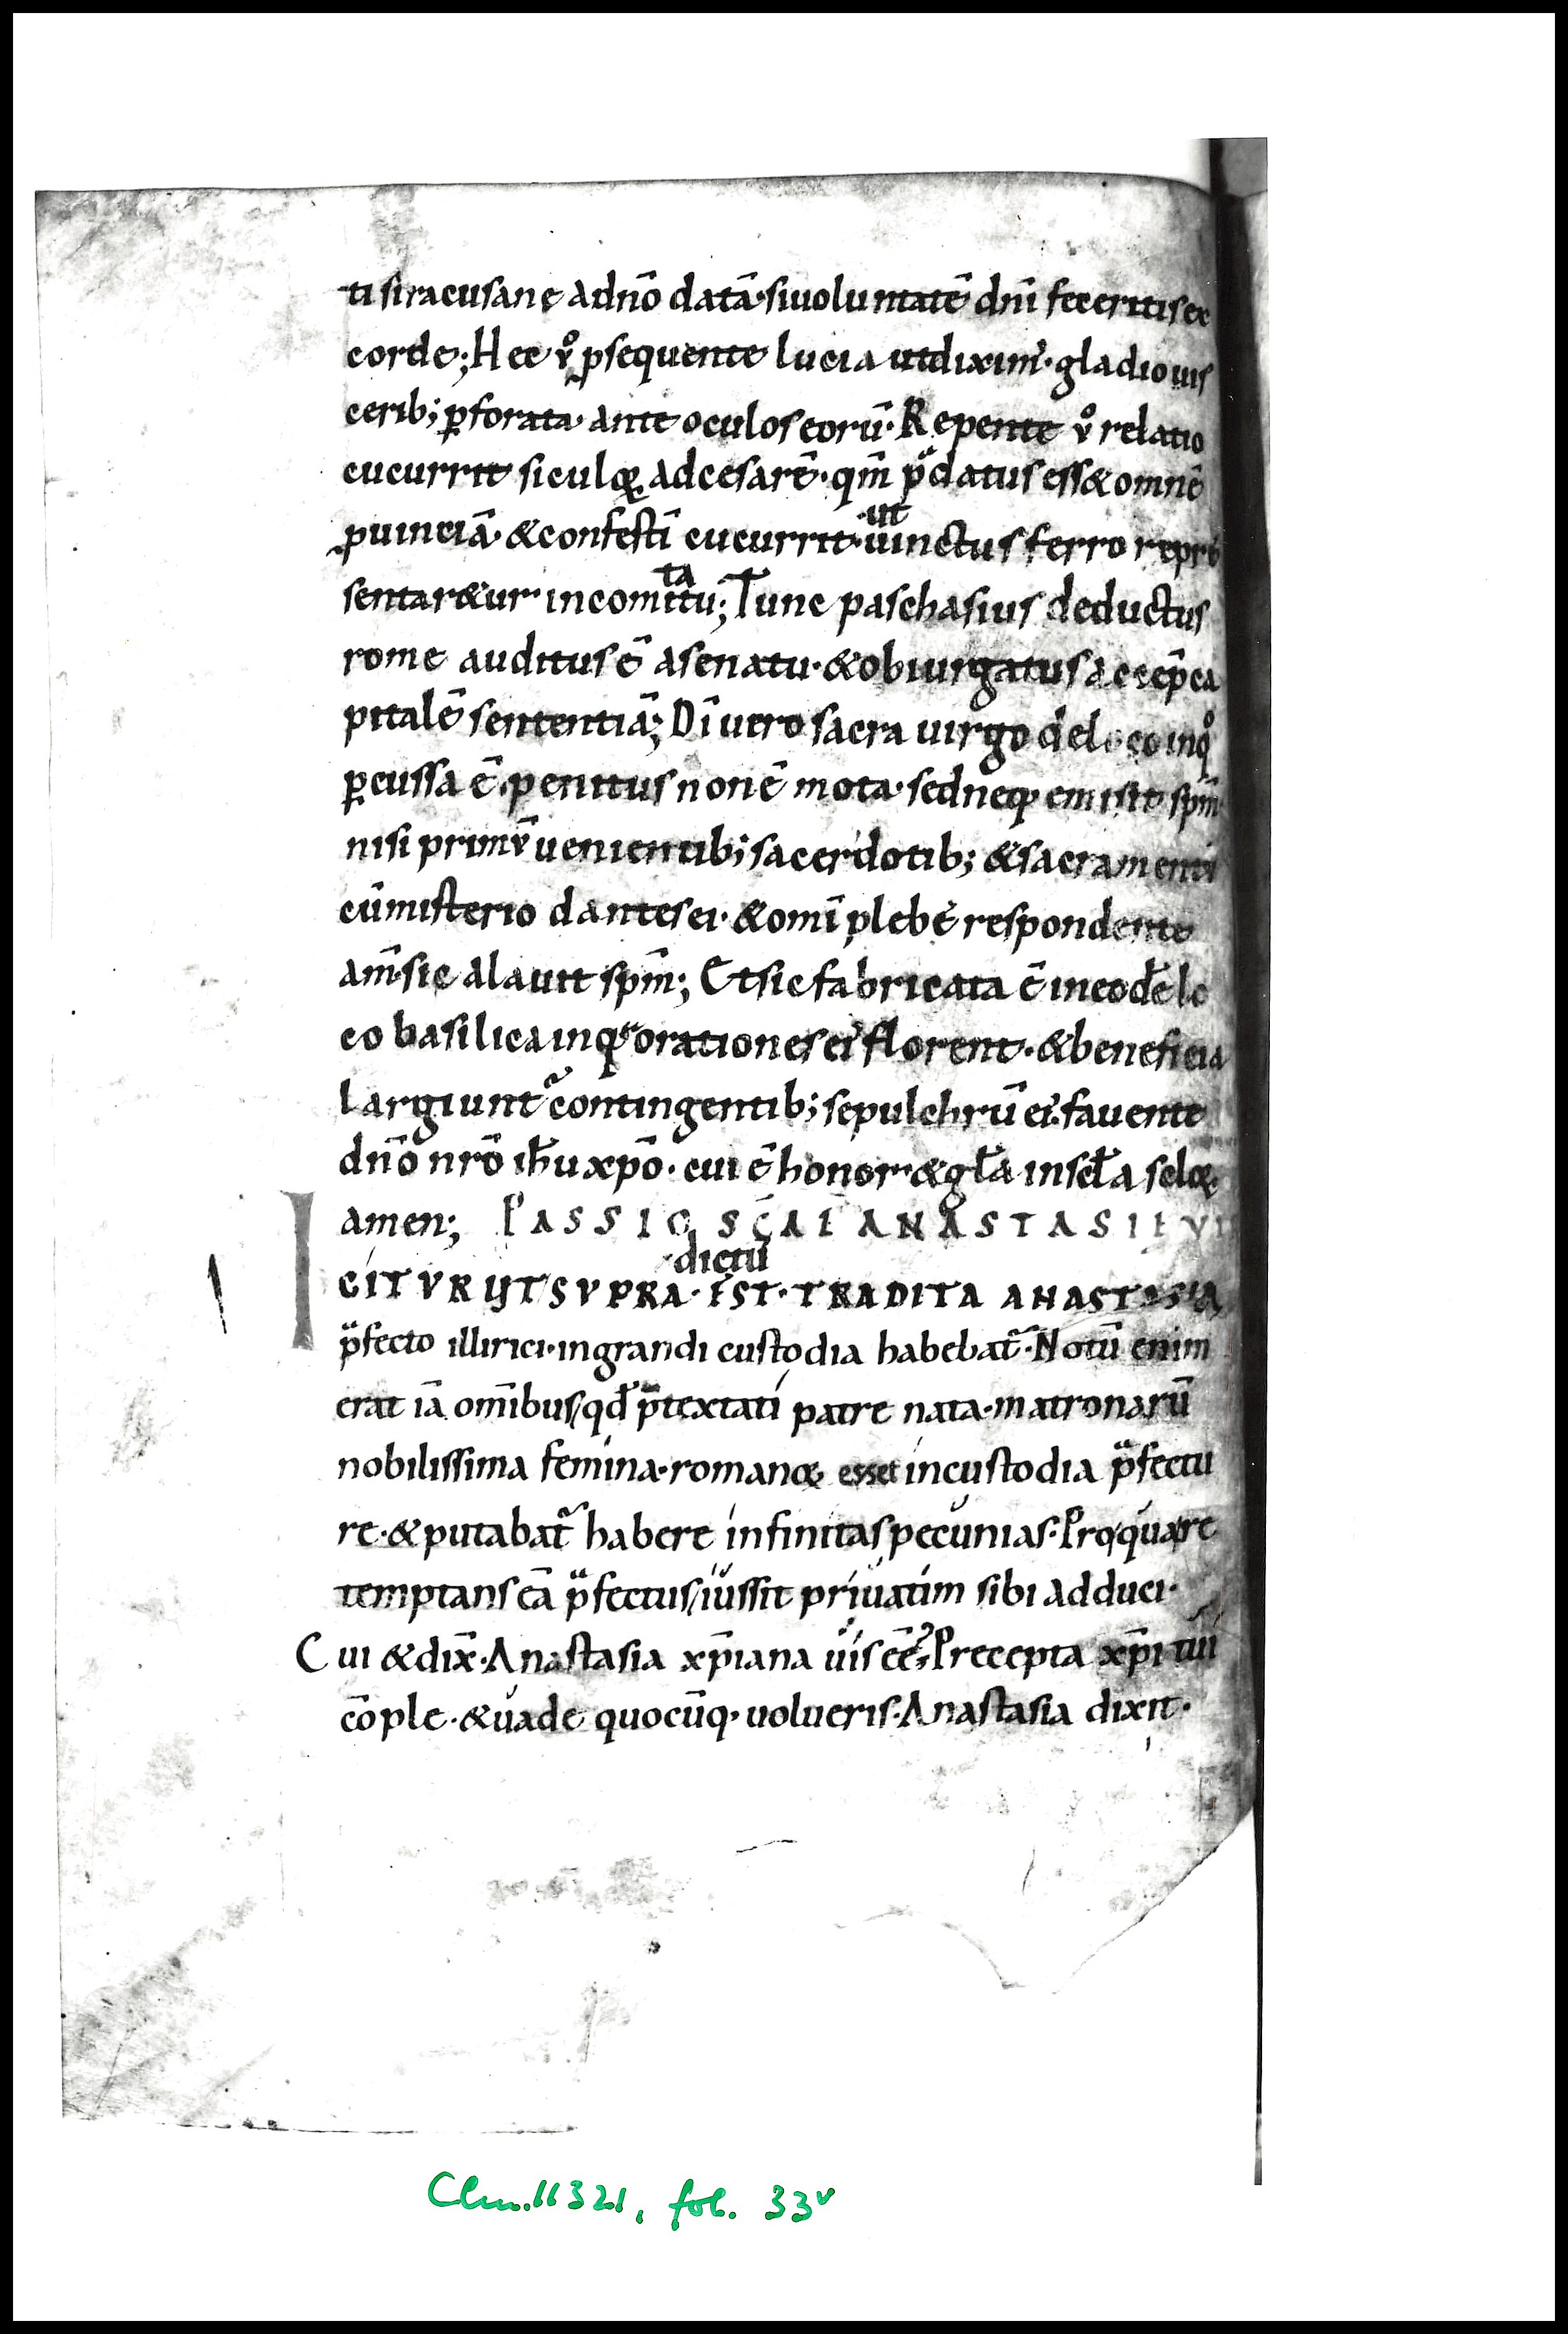 ti siracusane adnō datā· siuoluntatē dnī feceritis ex
corde; Hec v̊ ꝓsequente lucia utdiximꝰ· gladio uis
cerib; ꝑforata· ante oculos eorū· Repente v̊ relatio
cucurrit siculoꝝ adcesarē· qm̄ p̈datus ess& omnē
ꝓuinciā· &confestī cucurrit· ·ut uinctus ferro repre
sentar&ur· incomitatu; Tunc paschasius deductus
rome auditus ē asenatu· &obiurgatus accep̄ ca
pitalē sententiā; Dī uero sacra uirgo deloco inqͦ
ꝑcussa ē· penitus non ē mota· sedneq· emisit spm̄
nisi primv̄ uenientib; sacerdotib; &sacramenti
cūmisterio dantes ei· &omī plebe respondente
am̄· sic alauit spm̄; Et sic fabricata ē ineodē lo
co basilica inqͣ orationes eiꝰ florent· &beneficia
largiunt᷑ contingentib; sepulchrū eiꝰ· fauente
dnō nrō ih̄u xp̄o· cui ē honor· &gl̄a inscl̄a scloꝝ·
amen; PASSIO SC̄AE ANASTASIE VI
IGITVR UT SVPRA· dictū EST· TRADITA ANASTASIA
p̈fecto illirici· ingrandi custodia habebat᷑· Notū enim
erat iā om̄ibus/ qd̄ p̈textati patre nata· matronarū
nobilissima femina· romanoꝝ esset incustodia p̈fectu
re· &putabat᷑ habere infinitas pecunias· Pro quare
temptans eā p̈fectus/ iussit priuatim sibi adduci·
Cui &dix̄· Anastasia xp̄iana uis eē? Precepta xp̄i tui
cōple· &uade quocūq· uolueris· Anastasia dixit·
Clm. 11321, fol. 33v